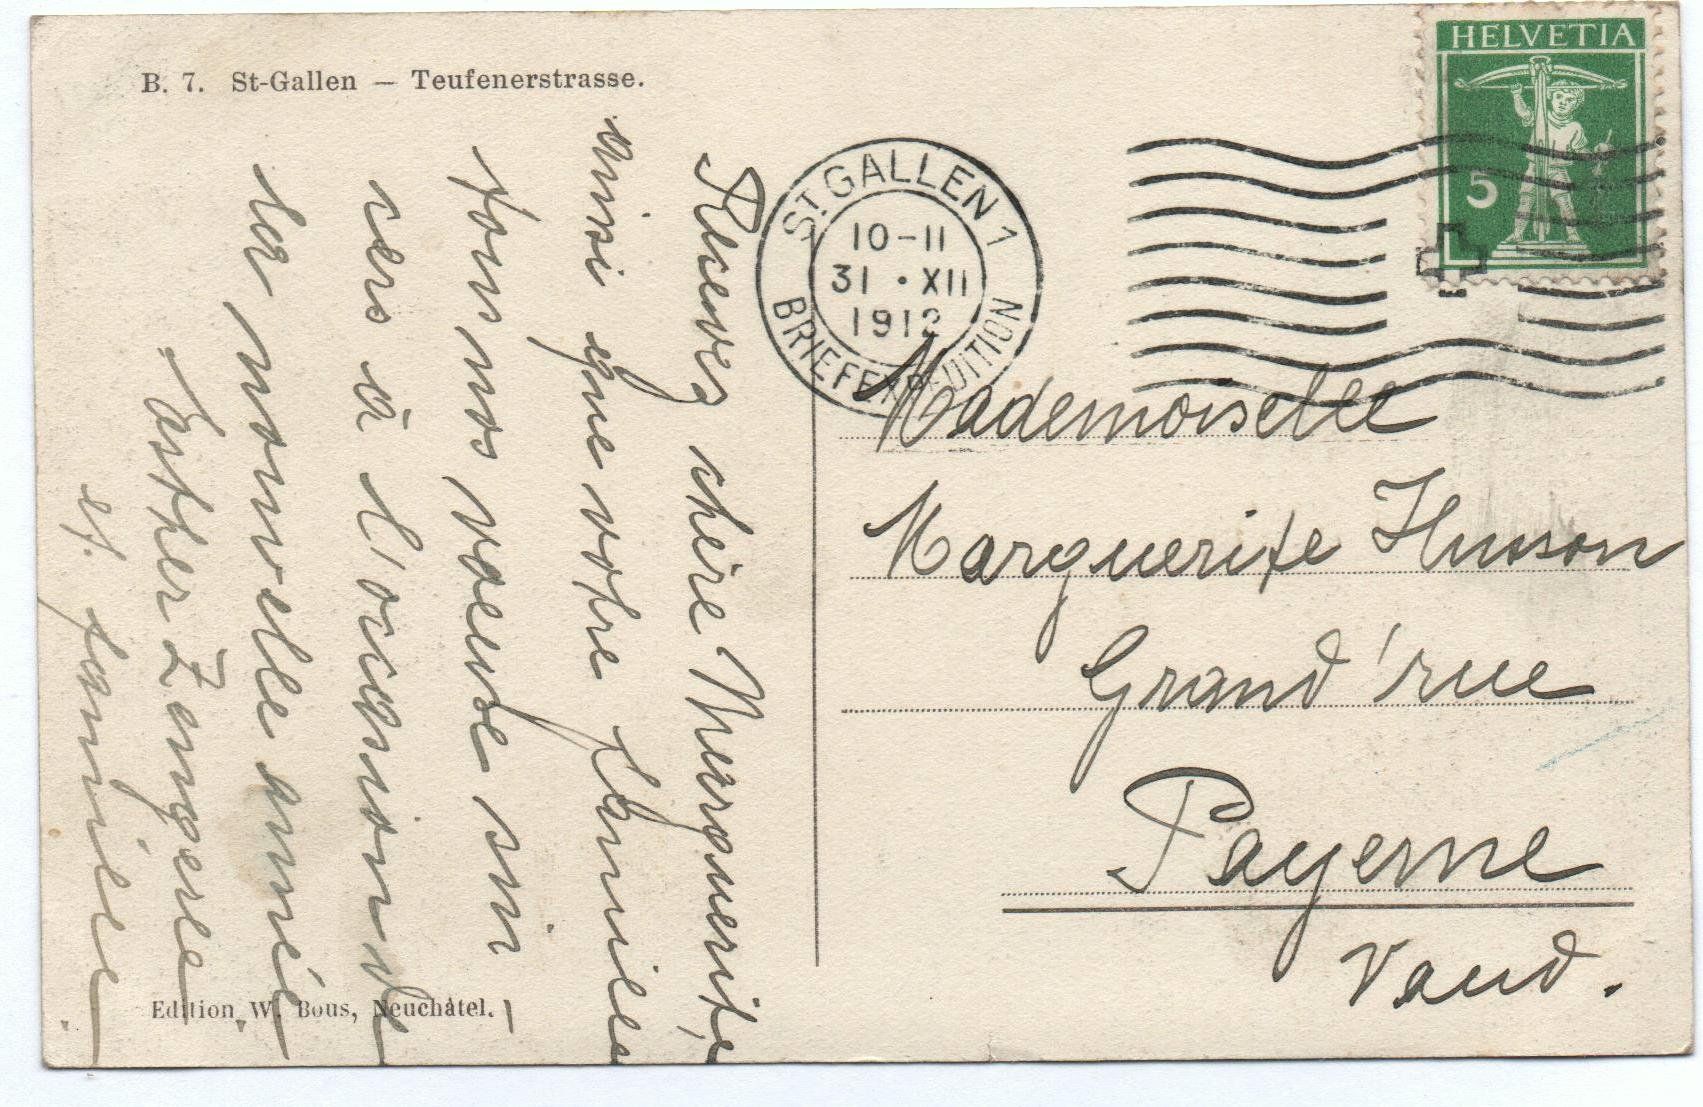 B. 7. St-Gallen — Teufenerstrasse.
HELVETIA
5
ST. GALLEN 1
10-11
31 • XII
1912
BRIEFEXPEDITION
Recevez chère Marguerite,
ainsi que votre famille
tous nos voeux sin-
cers à l'occasion de
la nouvelle année
Esther Zangerle
et famille.
Mademoiselle
Marguerite Husson
Grand'rue
Payerne
Vaud.
Edition W. Bous, Neuchâtel.